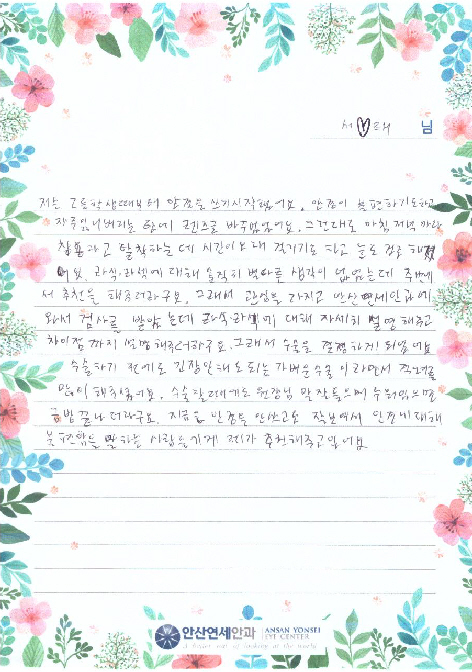 서♡희 님
저는 고등학생때부터 안경을 쓰기시작했어요. 안경이 불편하기도하고
자주잃어버리는 탓에 렌즈로 바꾸었었어요. 그런데도 아침 저녁마다
착용하고 탈착하는데 시간이오래 걸리기도 하고 눈도 건조해졌
어요. 라식·라섹에 대해 솔직히 별다른 생각이 없었는데 주변에
서 추천을 해주더라구요. 그래서 관심을 가지고 안산연세안과에
와서 검사를 받았는데 라식·라섹에 대해 자세히 설명해주고
차이점까지 설명해주더라구요. 그래서 수술을 결정하게 되었어요
수술하기 전에도 긴장안해도되는 가벼운수술이라면서 격려를
많이 해주셨어요. 수술할때에도 원장님 말씀들으며 누워있으면
금방 끝나더라구요. 지금은 안경을 안쓰고도 잘보여서 안경에대해
불편함을 말하는 사람들에게 제가 추천해주고있어요.
안산연세안과 ANSAN YONSEI
EYE CENTER
A better way of looking at the world